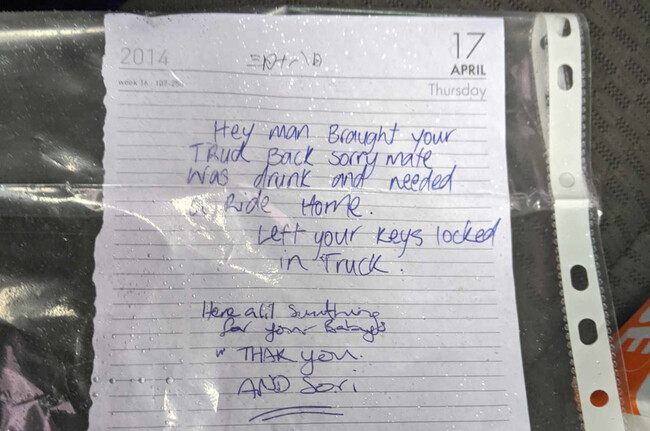 2014
17
APRIL
week 16
Thursday
Hey man Brought your
TRuck Back sorry mate
Was drunk and needed
a Ride Home.
Left your keys locked
in Truck.
Here a lil Sumthing
for your
THAK you.
AND Sori